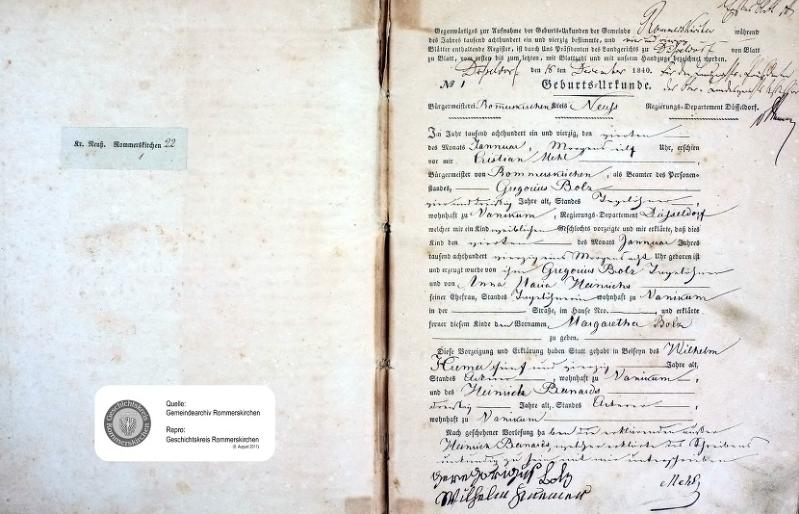 Kr. Neuß. Rommerskirchen 22
1
Quelle:
Gemeindearchiv Rommerskirchen
Repro:
Geschichtskreis Rommerskirchen
(8. August 2011)
Geschichtskreis Rommerskirchen
Gegenwärtiges zur Aufnahme der Geburts-Urkunden der Gemeinde Rommerskirchen während
des Jahres tausend achthundert ein und vierzig bestimmte, und
Blätter enthaltende Register, ist durch Uns Präsidenten des Landgerichts zu Düsseldorf von Blatt
zu Blatt, vom ersten bis zum letzten, mit Blattzahl und mit unserm Handzuge bezeichnet worden.
Düsseldorf den 16 ten Dezember 1840.
№ 1 Geburts-Urkunde.
Bürgermeisterei Rommerskirchen Kreis Neuss Regierungs-Departement Düsseldorf.
Im Jahr tausend achthundert ein und vierzig, den vierten
des Monats Januar, Morgens elf Uhr, erschien
vor mir Cristian Mehl
Bürgermeister von Rommerskirchen, als Beamter des Personen-
standes, Gregorius Bolz
vier und dreißig Jahre alt, Standes Tagelöhner
wohnhaft zu Vanikum, Regierungs-Departement Düsseldorf
welcher mir ein Kind weiblichen Geschlechts vorzeigte und mir erklärte, daß dies
Kind den vierten des Monats Januar Jahres
tausend achthundert vierzig eins Morgens acht Uhr geboren ist
und erzeugt wurde von ihm Gregorius Bolz Tagelöhner
und von Anna Maria Heinrichs
seiner Ehefrau, Standes Tagelöhnerin wohnhaft zu Vanikum
in der Straße, im Hause Nro. und erklärte
ferner diesem Kinde den Vornamen Margaretha Bolz
zu geben.
Diese Vorzeigung und Erklärung haben Statt gehabt in Beiseyn des Wilhelm
fünf und vierzig Jahre alt,
Standes Ackerer, wohnhaft zu Vanikum,
und des Heinrich Bernards
dreißig Jahre alt, Standes Ackerer
wohnhaft zu Vanikum
Nach geschehener Vorlesung haben die erklärenden außer
Heinrich Bernards, welcher erklärte des Schreibens
unkundig zu sein mit mir unterschrieben
Gregorigus Bolz
Wilhelm Mehl